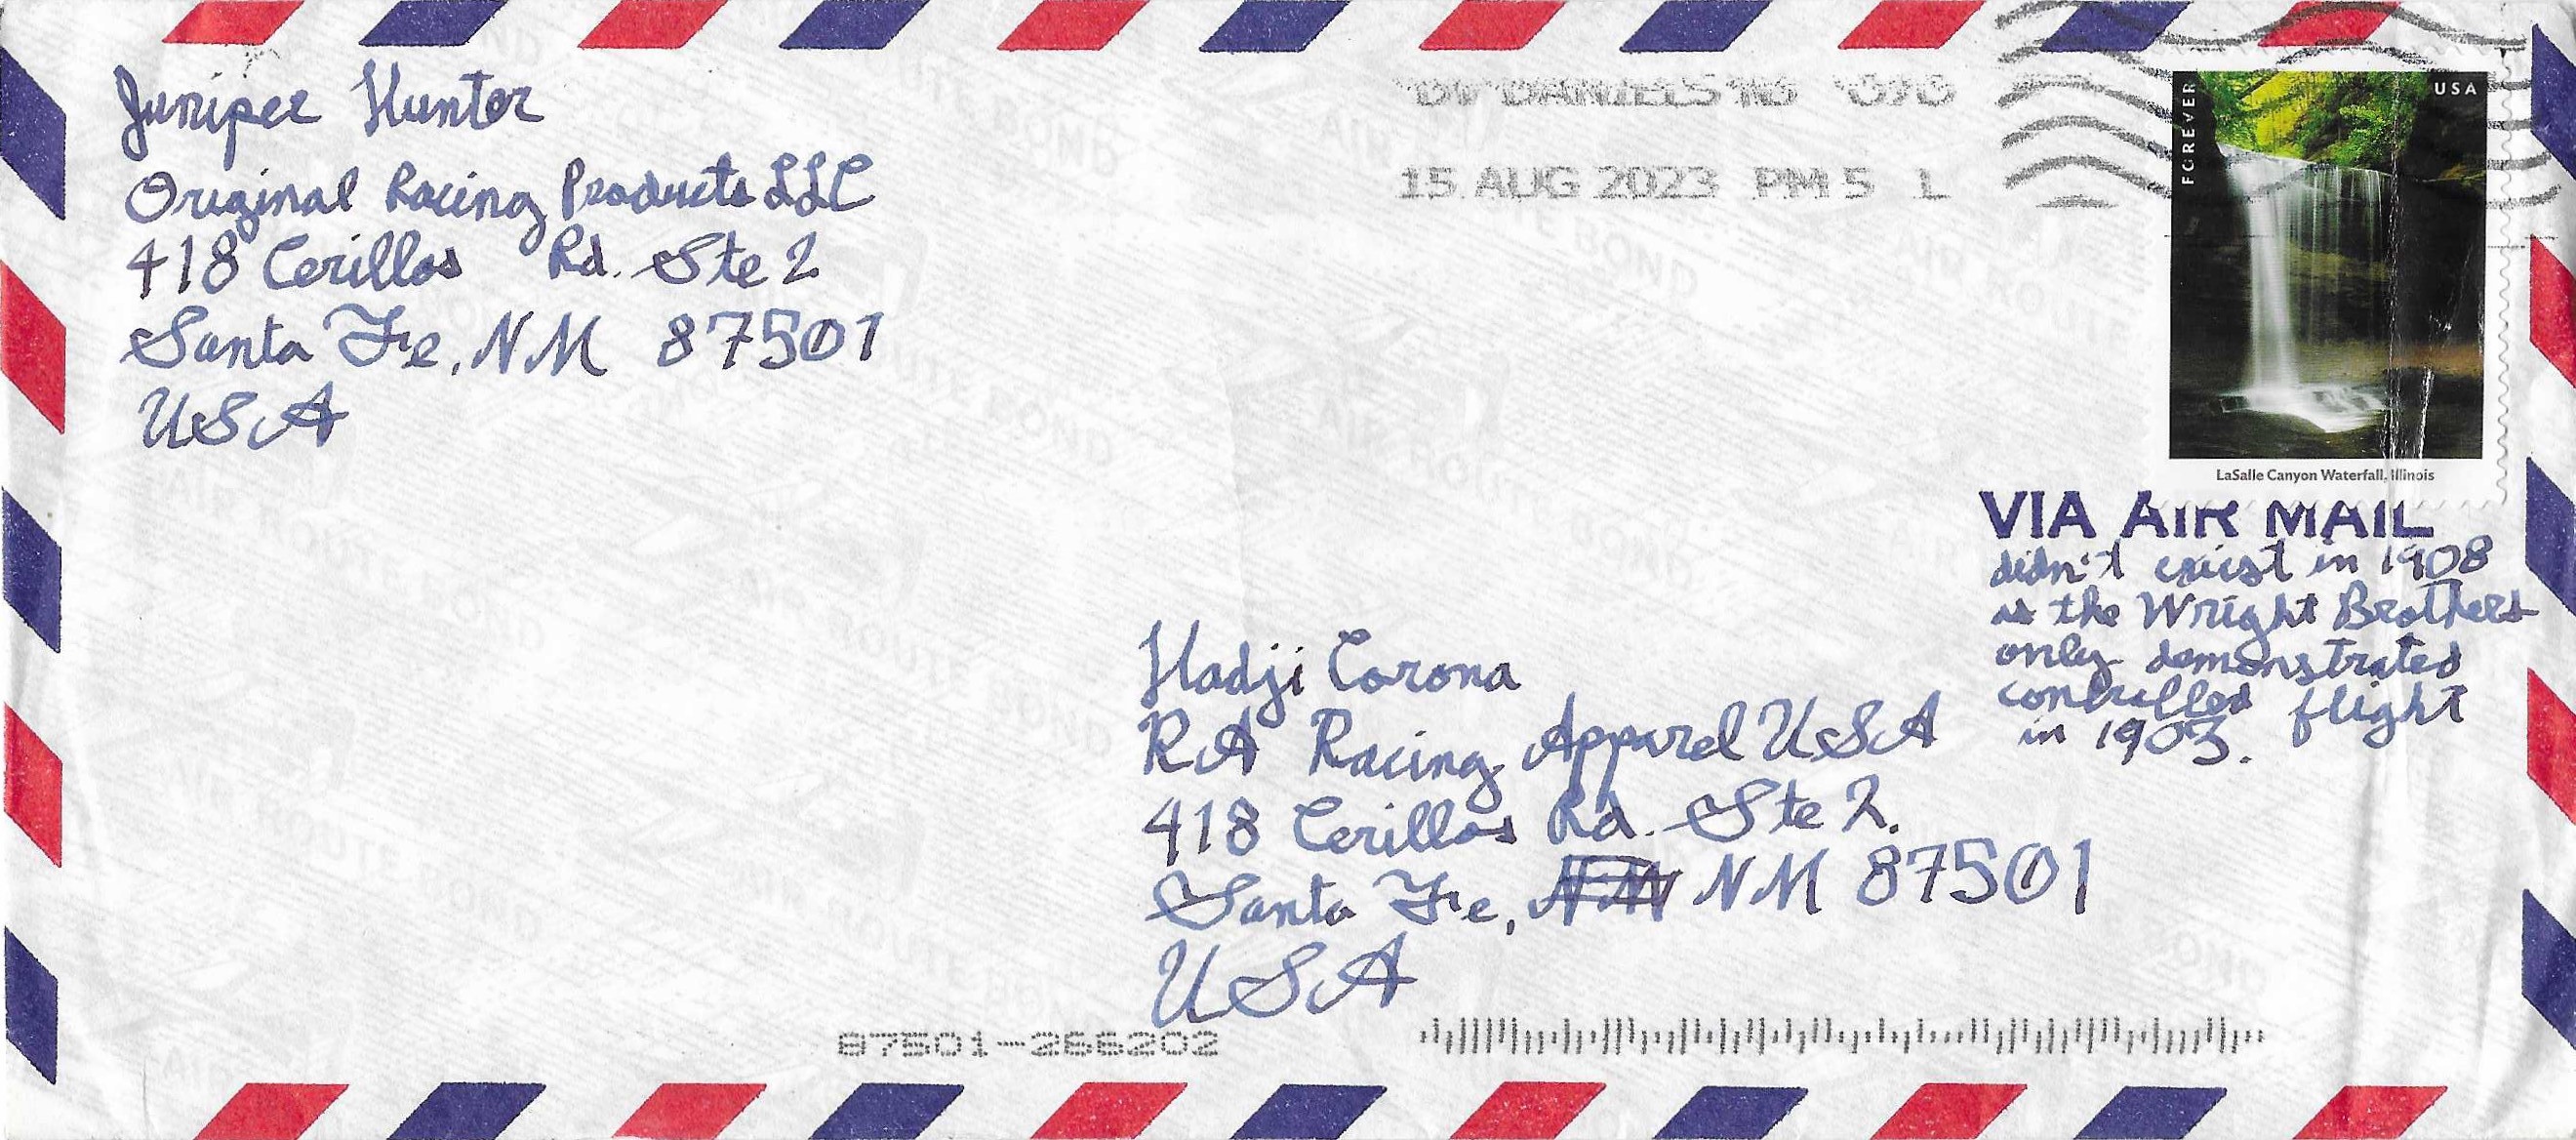 Juniper Hunter
Original Racing Products LLC
418 Cerillos Rd. Ste 2
Santa Fe, NM 87501
USA
DV DANIELS NJ 070
15 AUG 2023 PM 5 L
FOREVER
USA
LaSalle Canyon Waterfall, Illinois
VIA AIR MAIL
didn't exist in 1908
as the Wright Brothers
only demonstrated
controlled flight
in 1903.
Hadji Corona
RA Racing Apparel USA
418 Cerillos Rd. Ste 2.
Santa Fe, NM NM 87501
USA
87501-266202